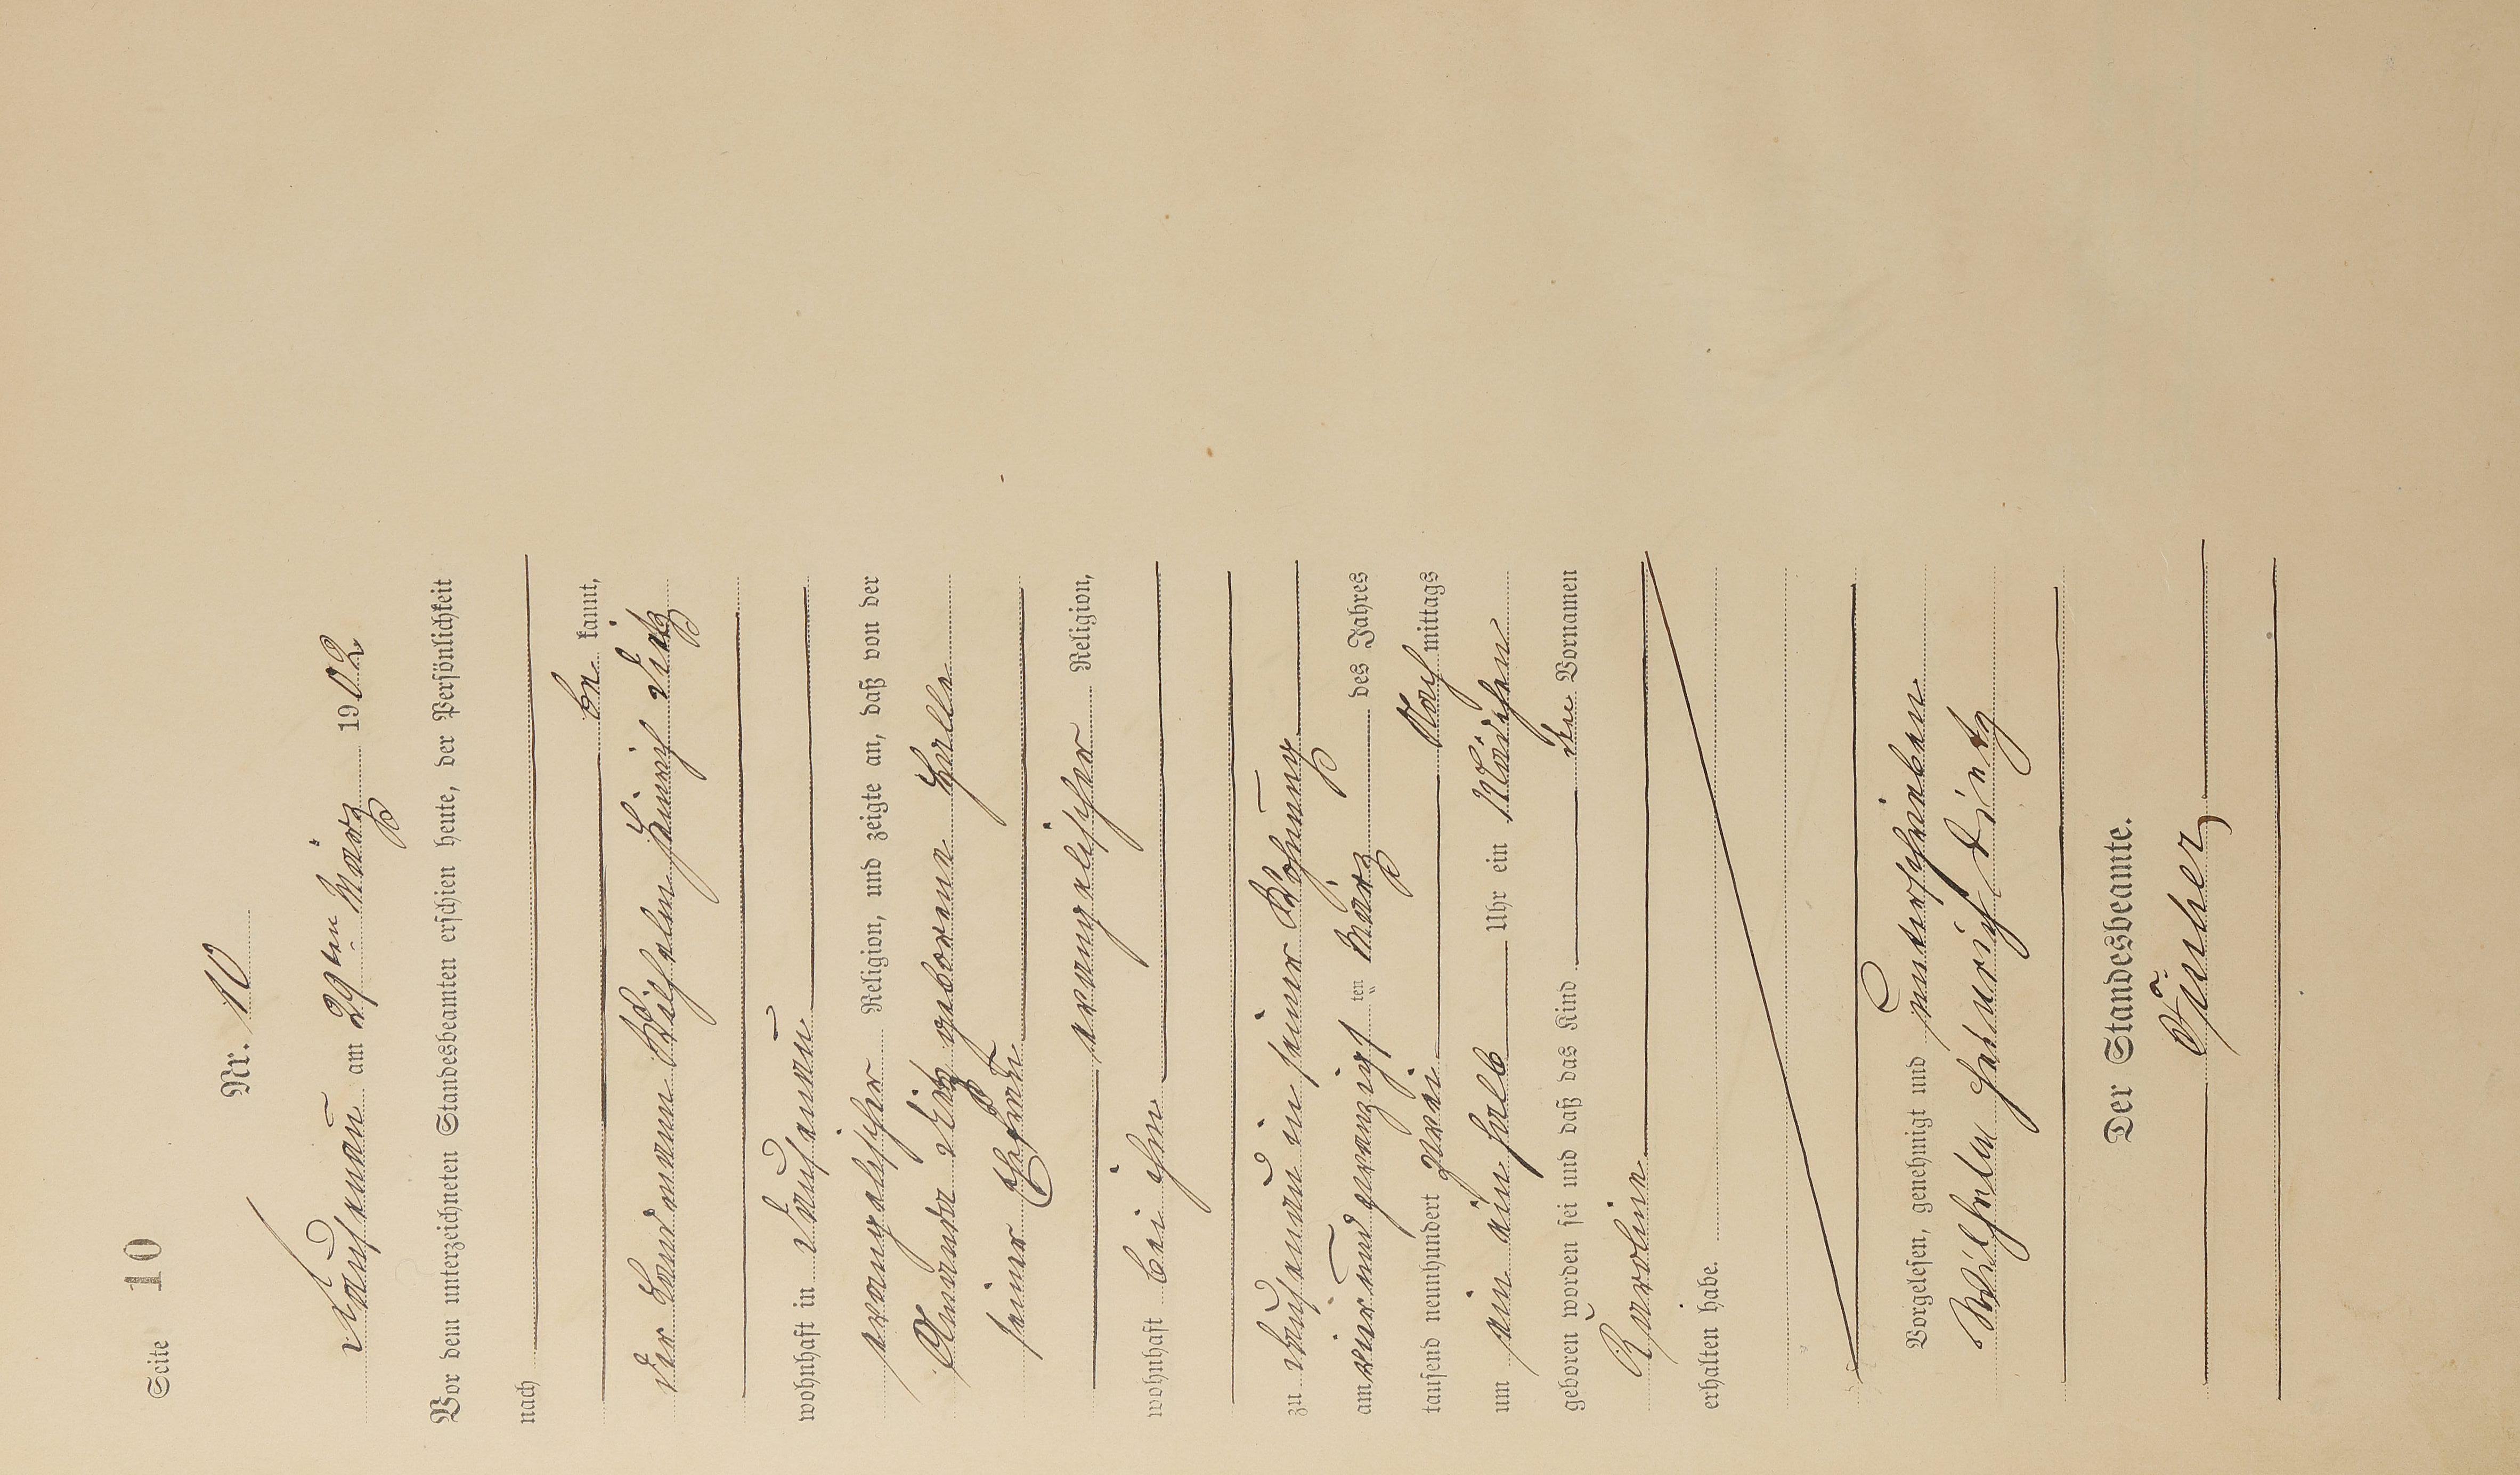 Seite 10
Nr. 10
Dausenau am 29ten März 1902
Vor dem unterzeichneten Standesbeamten erschien heute, der Persönlichkeit
nach
be kannt,
der Landmann Wilhelm Heinrich Dietz
wohnhaft in Dausenau
evangelischer Religion, und zeigte an, daß von der
Amande Dietz geborene Helle
seiner Ehefrau
evangelischer Religion,
wohnhaft bei ihm
zu Dausenau in seiner Wohnung
am vier und zwanzigsten März des Jahres
tausend neunhundert zwei Nach mittags
um ein ein halb Uhr ein Mädchen
geboren worden sei und daß das Kind den Vornamen
Karoline
erhalten habe.
Vorgelesen, genehmigt und unterschrieben
Wilhelm Heinrich Dietz
Der Standesbeamte.